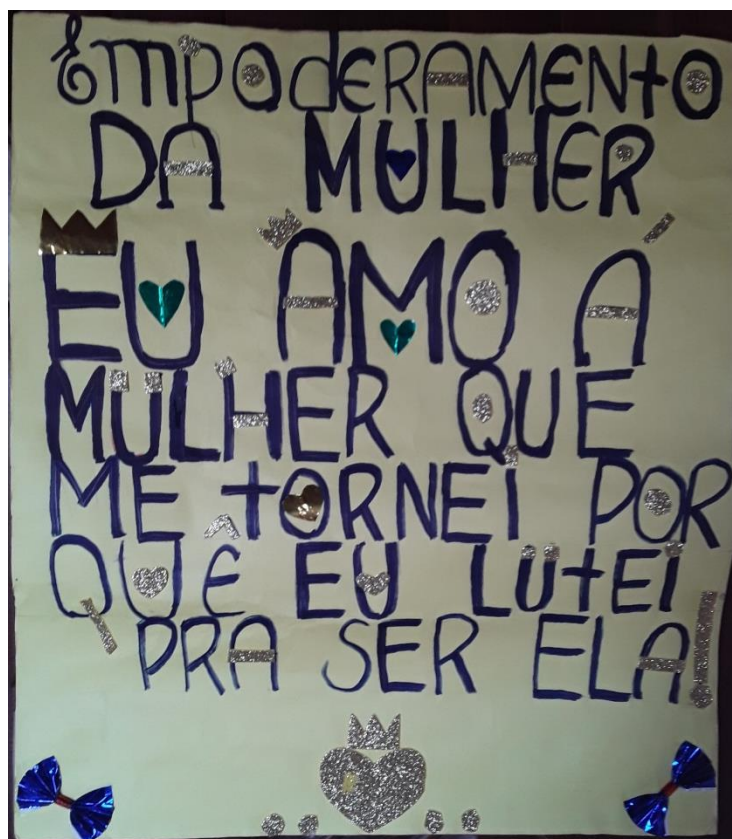 EmpodeRAMENtO
DA MULHER
EU AMO Á
MULHER QUE
ME tORNEI POR
QUÊ EU LUtEI
PRA SER ELA!